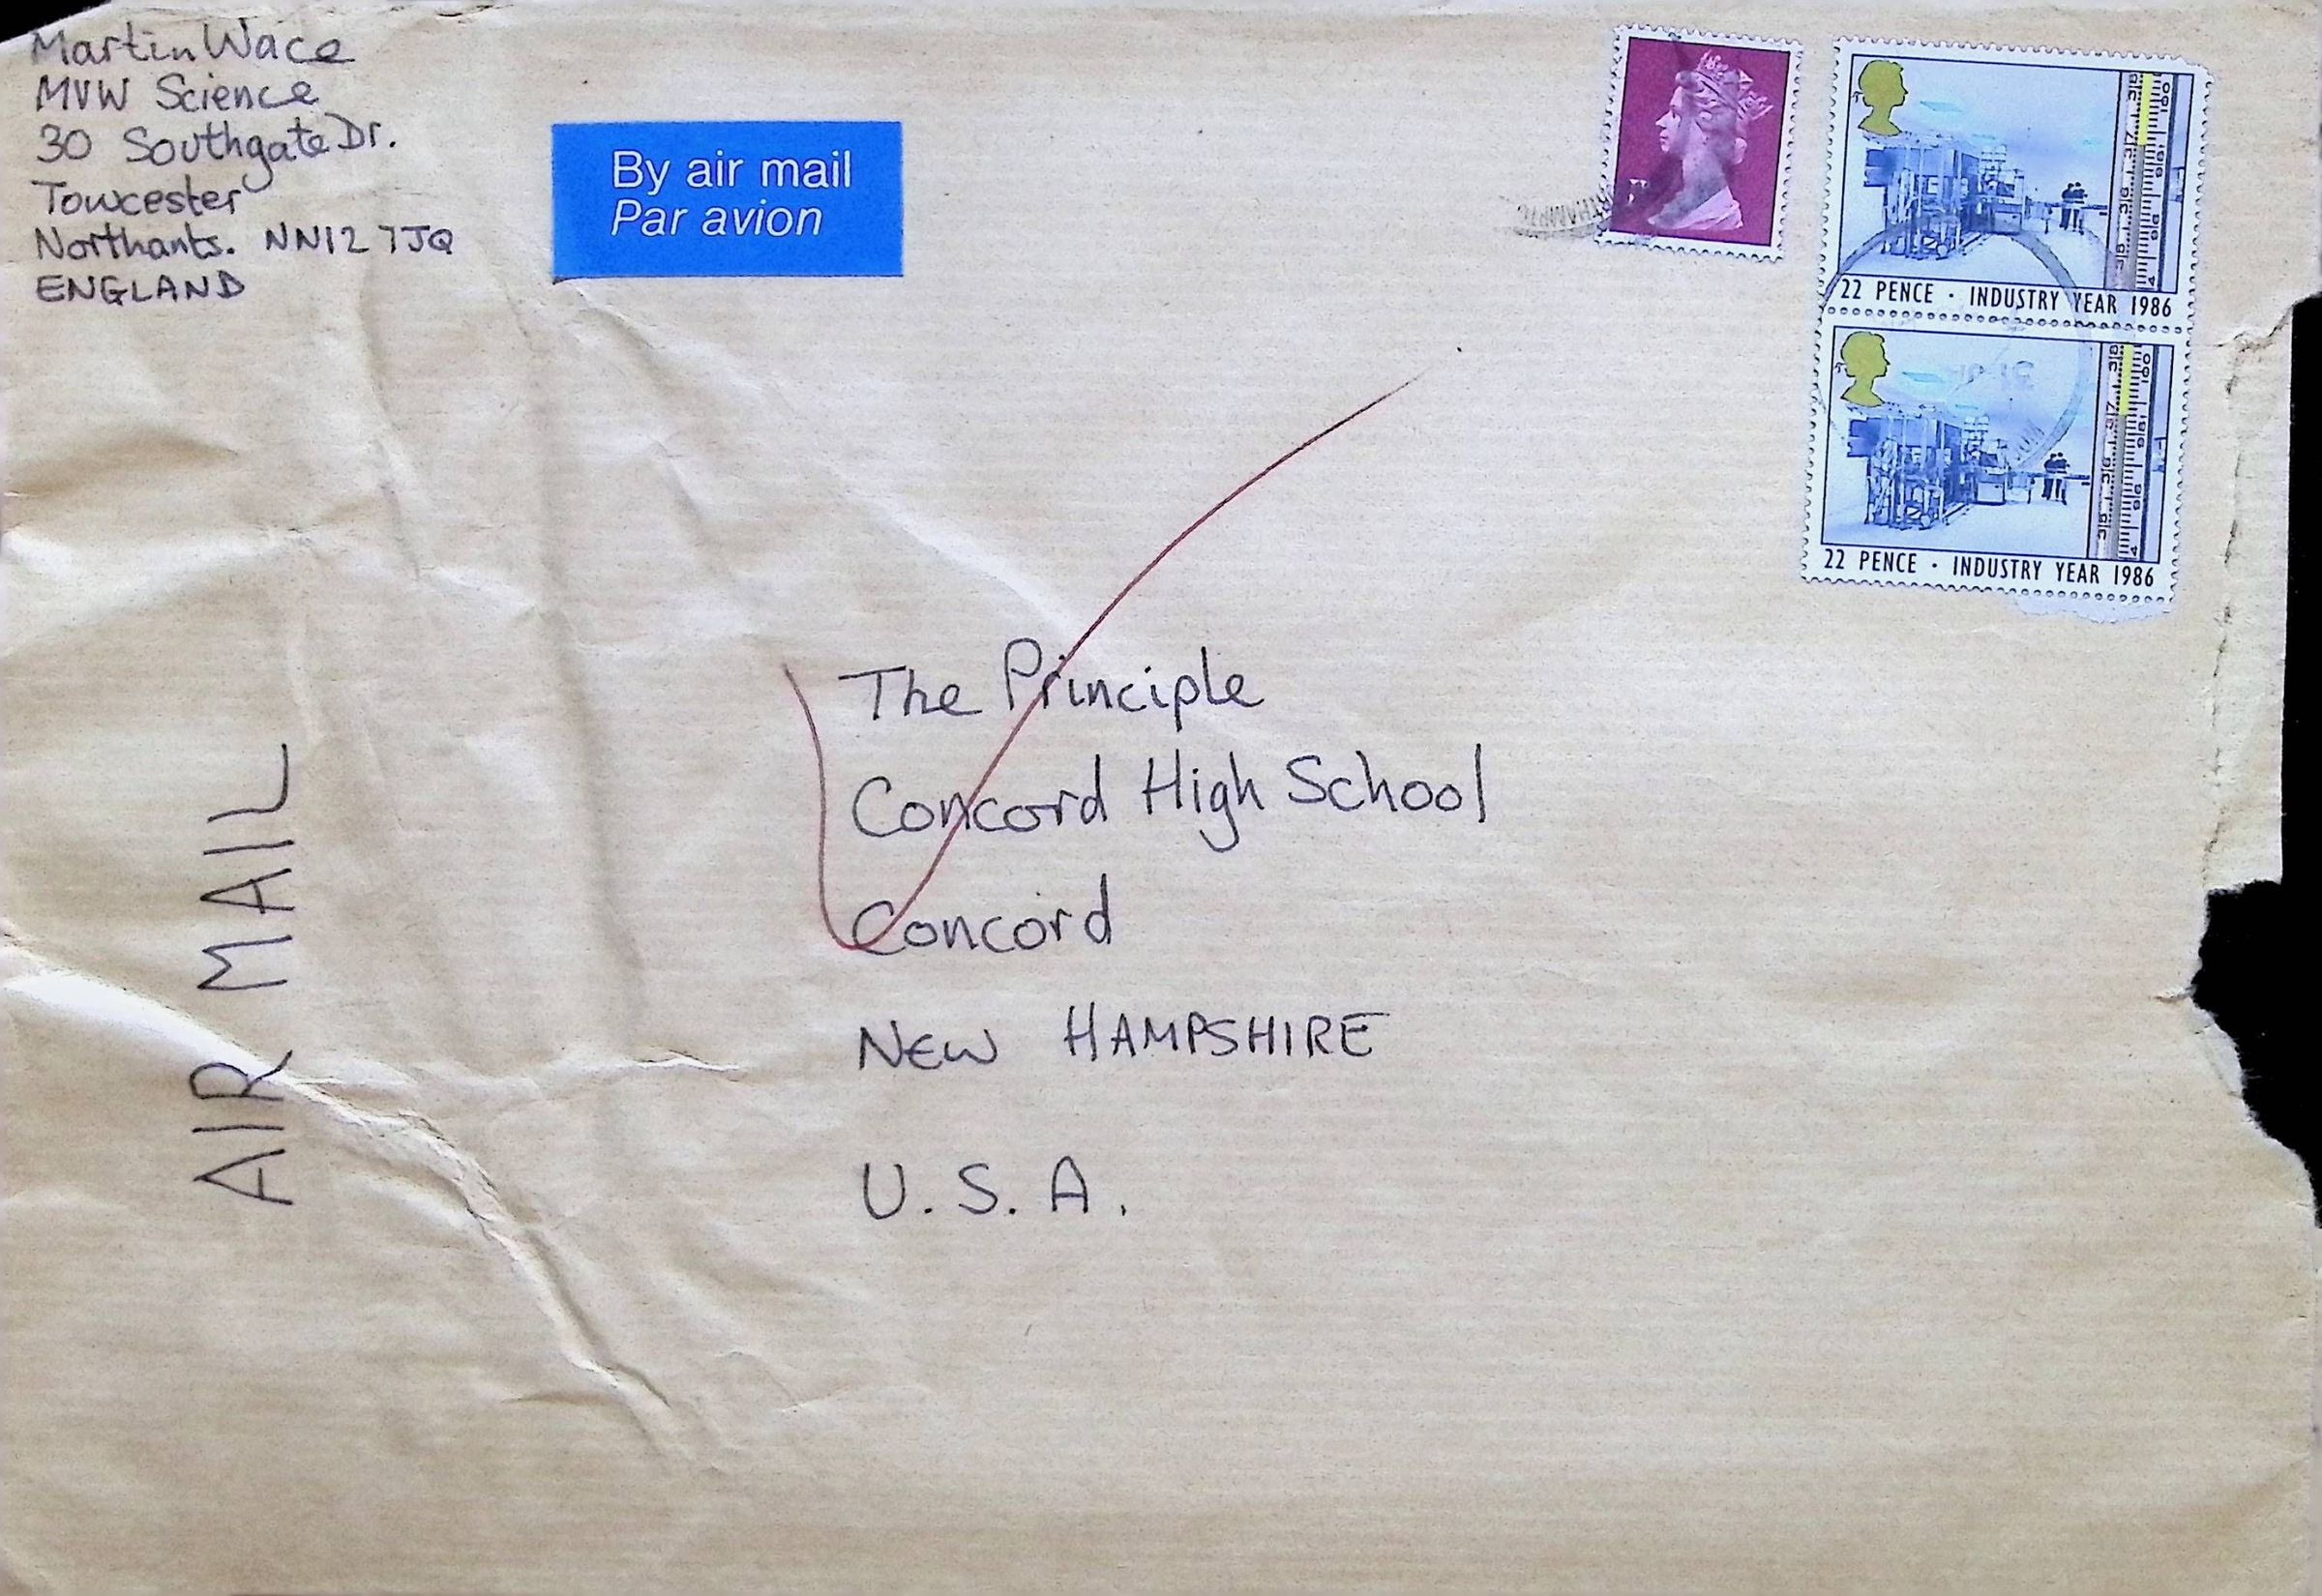 Martin Wace
MVW Science
30 Southgate Dr.
Towcester
Northants. NN12 7JQ
ENGLAND
By air mail
Par avion
22 PENCE · INDUSTRY YEAR 1986
22 PENCE · INDUSTRY YEAR 1986
The Principle
Concord High School
Concord
NEW HAMPSHIRE
U.S.A.
AIR MAIL